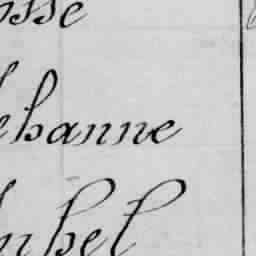 osse
ehanne
nbel